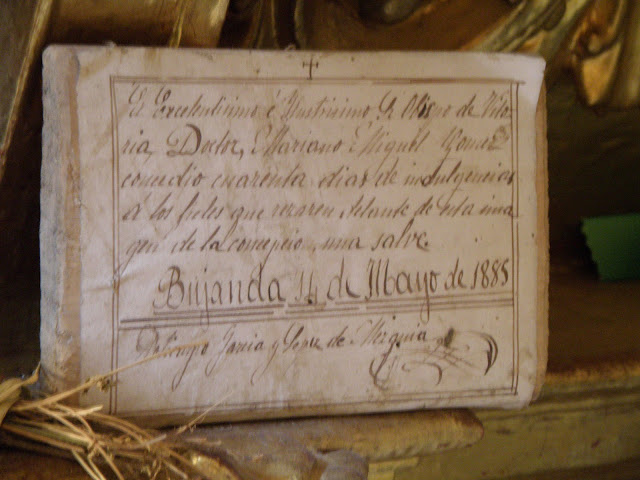 El Excelentisimo é Ylustrisimo Sr Obispo de Vito-
ria, Doctor, Mariano Miguel Gomez
concedio cuarenta dias de indulgencias
á los fieles que rezaren delante de esta ima
gen de la concepcion una salve.
Bujanda 14 de Mayo de 1885
Garcia y Lopez de Mezquia